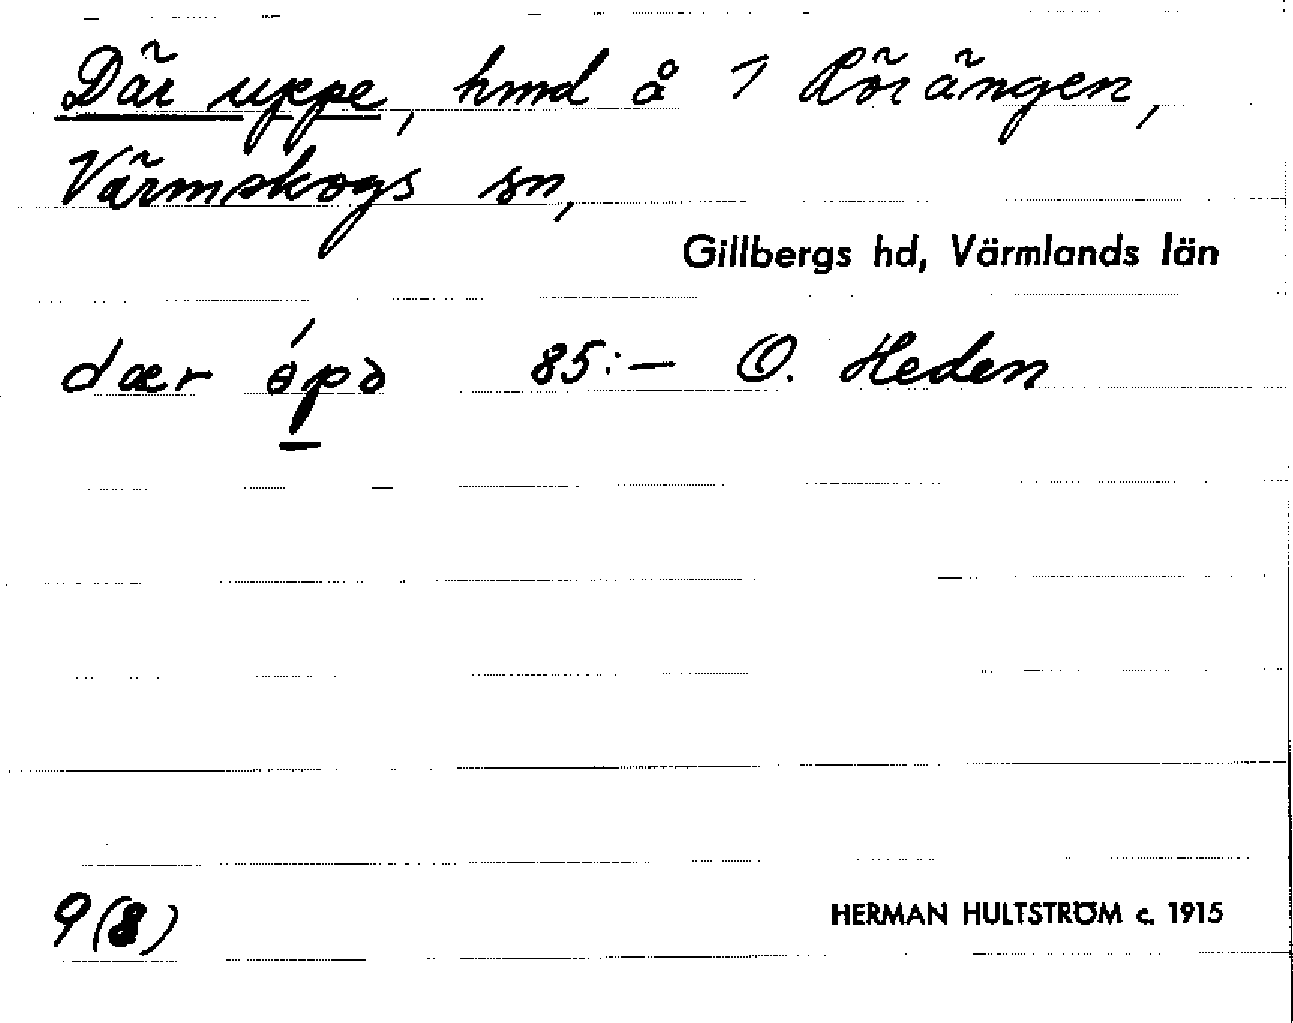 Där uppe, hmd å 1 Rörängen,
Värmskogs sn,
Gillbergs hd, Värmlands län
dær ɵ́pə 85:– O. Heden
9(8)
HERMAN HULTSTRÖM c. 1915